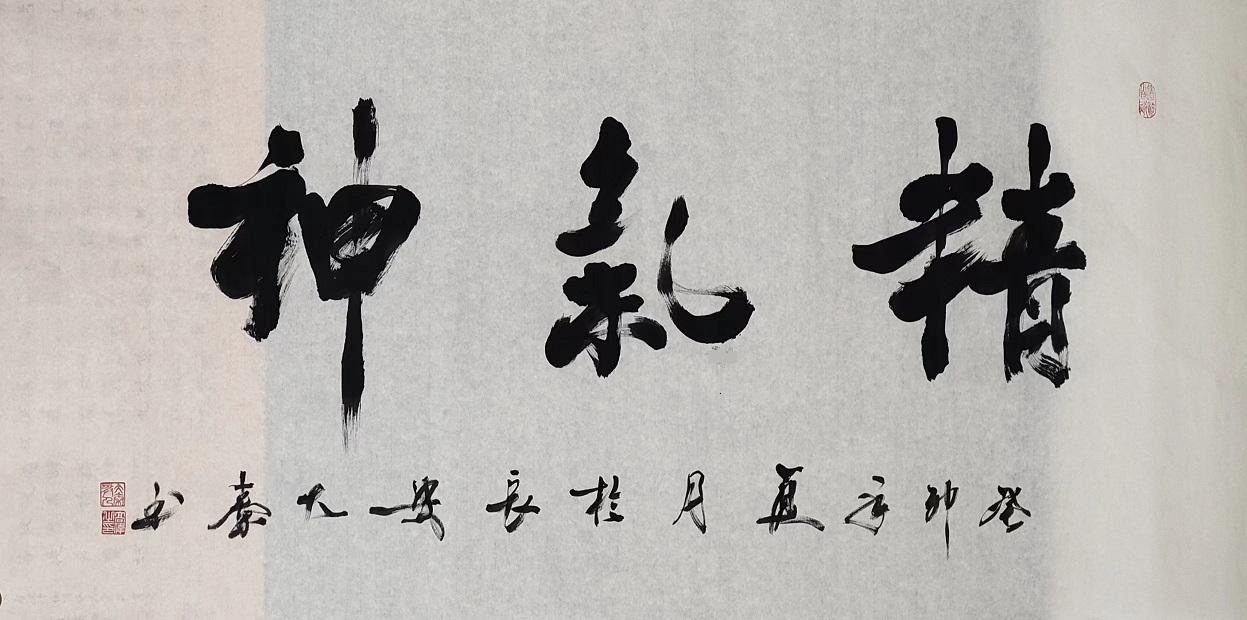 精氣神
癸卯年夏月於长安大秦书